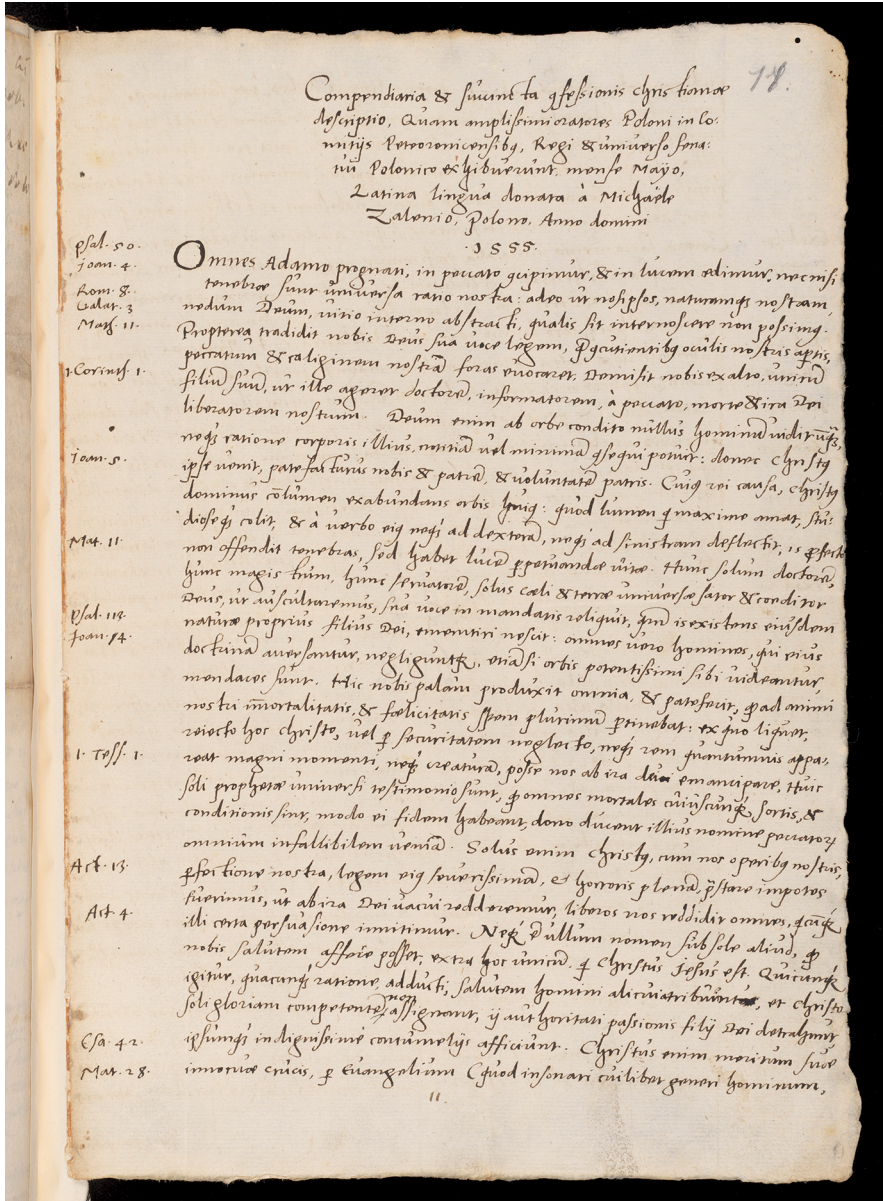 18.
Compendiaria & succincta ꝯfessionis christianae
descriptio, Quam amplissimi oratores Poloni in Co-
mitijs Peteoronicensibꝰ, Regi & universo sena-
tui Polonico exhibuerunt, mense Mayo,
Latina lingua donata à Michaële
Zalenio, Polono, Anno domini
·1555·
psal. 50.
Joan. 4.
Rom. 8.
Galat. 3
Math. 11.
1. Corinth. 1.
Joan. 5.
Mat. 11
Psal. 113.
Joan. 14.
1. Tess. 1.
Act. 13.
Act. 4.
Esa. 42.
Mat. 28.
Omnes Adamo prognati, in peccato ꝯcipimur, & in lucem ędimur, nec nisi
tenebrae sunt universa ratio nostra: adeo ut nosipsos, naturamqꝫ nostram,
nedum Deum, vitio interno abstracti, qualis sit internoscere non possimꝰ.
Propterea tradidit nobis Deus sua voce legem, ꝙ ꝯcutientibꝰ oculis nostris aptis,
peccatum & caliginem nostrā foras evocaret. Demisit nobis ex alto, unicū
filiū suū, ut ille ageret doctorē, informatorem, à peccato, morte & ira Dei
liberatorem nostrum. Deum enim ab orbe condito nullus hominū vidit unqꝫ,
neqꝫ ratione corporis illius, notitiā vel minimā ꝯsequi potuit: donec Christꝰ
ipse venit, patefacturus nobis & patrē, & voluntatē patris. Cuiꝰ rei causa, Christꝰ
dominus est lumen exabundans orbis huiꝰ: quod lumen qui maxime amat, stu-
dioseqꝫ colit, & à verbo eiꝰ neqꝫ ad dexterā, neqꝫ ad sinistram deflectit, is ꝓfecto
non offendit tenebras, sed habet lucē ꝑpetuandae vitae. Hunc solum doctorē,
hunc magistrum, hunc servatorē, solus caeli & terrae universae sator & conditor
Deus, ut auscultaremus, sua voce in mandatis reliquit, qm̄ is existens eiusdem
naturae proprius filius Dei, ementiri nescit: omnes vero homines, qui eius
doctrinā aversantur, negliguntqꝫ, etiāsi orbis potentissimi sibi videantur,
mendaces sunt. Hic nobis palam produxit omnia, & patefecit, ꝙ ad animi
nostri im̄ortalitatis, & foelicitatis spem plurimū ꝑtinebat: ex quo liquet,
reiecto hoc Christo, vel ꝑ securitatem neglecto, neqꝫ rem quantumvis appa-
reat magni momenti, neqꝫ creaturā, posse nos ab ira emancipare. Huic
soli prophetae universi testimonio sunt, ꝙ omnes mortales cuiuscunqꝫ sortis, &
conditionis sint, modo ei fidem habeant, dono ducent illius nomine peccatorꝝ
omnium infallibilem veniā. Solus enim Christꝰ, cum nos operibꝰ nostris,
ꝑfectione nostra, legem eiꝰ severissimā, & horroris plenā, p̄stare impotes
fuerimus, ut ab ira Dei vacui redderemur, liberos nos reddidit omnes, qcūqꝫ
illi certa persuasione innitimur. Neqꝫ ē ullum nomen sub sole aliud, ꝙ
nobis salutem afferre posset, extra hoc unicū, q Christus Jesus est. Quicunqꝫ
igitur, quacunqꝫ ratione adducti, salutem homini alicui attribuunt, et Christo
soli gloriam competentē non assignant, ij authoritati passionis filij Dei detrahunt
ipsumqꝫ indignissime contumelijs afficiunt. Christus enim meritum suae
innocuae crucis, ꝑ Evangelium (quod insonari cuilibet generi hominum,
11